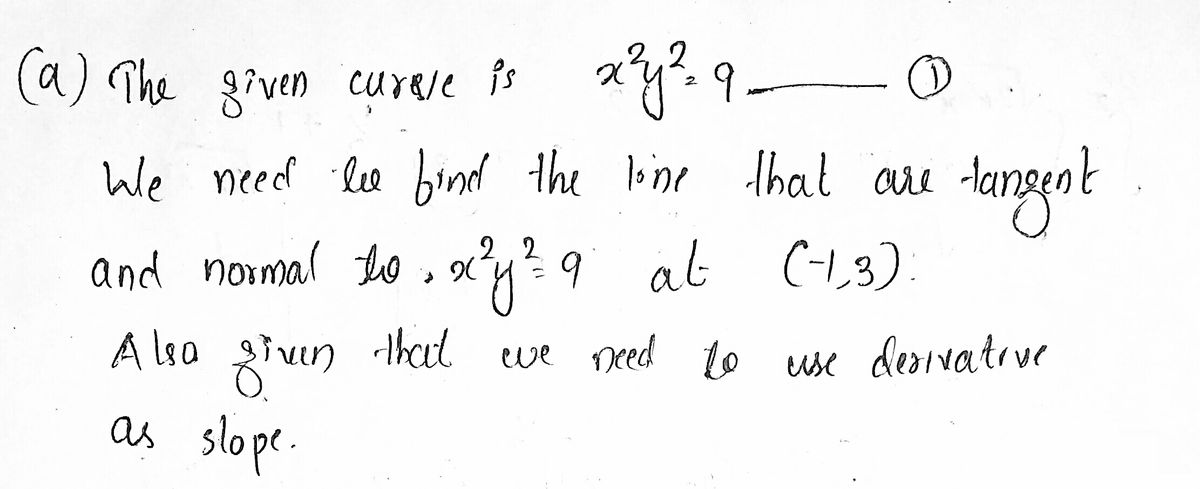 (a) The given curve is x²y² = 9 ——— ①
We need to find the line that are tangent
and normal to x²y² = 9 at (-1,3).
Also given that we need to use derivative
as slope.